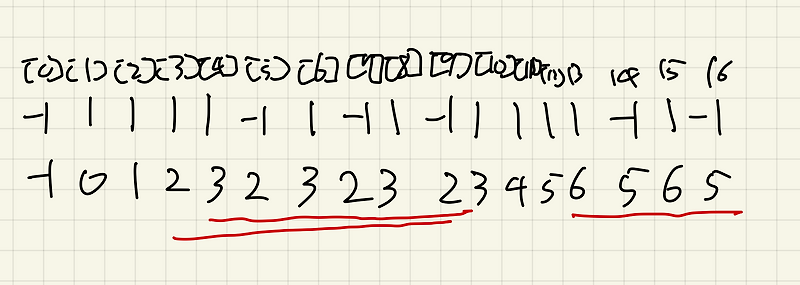 [0] [1] [2] [3] [4] [5] [6] [7] [8] [9] [10] [11] [12] 13 14 15 16
-1 1 1 1 1 -1 1 -1 1 -1 1 1 1 1 -1 1 -1
-1 0 1 2 3 2 3 2 3 2 3 4 5 6 5 6 5